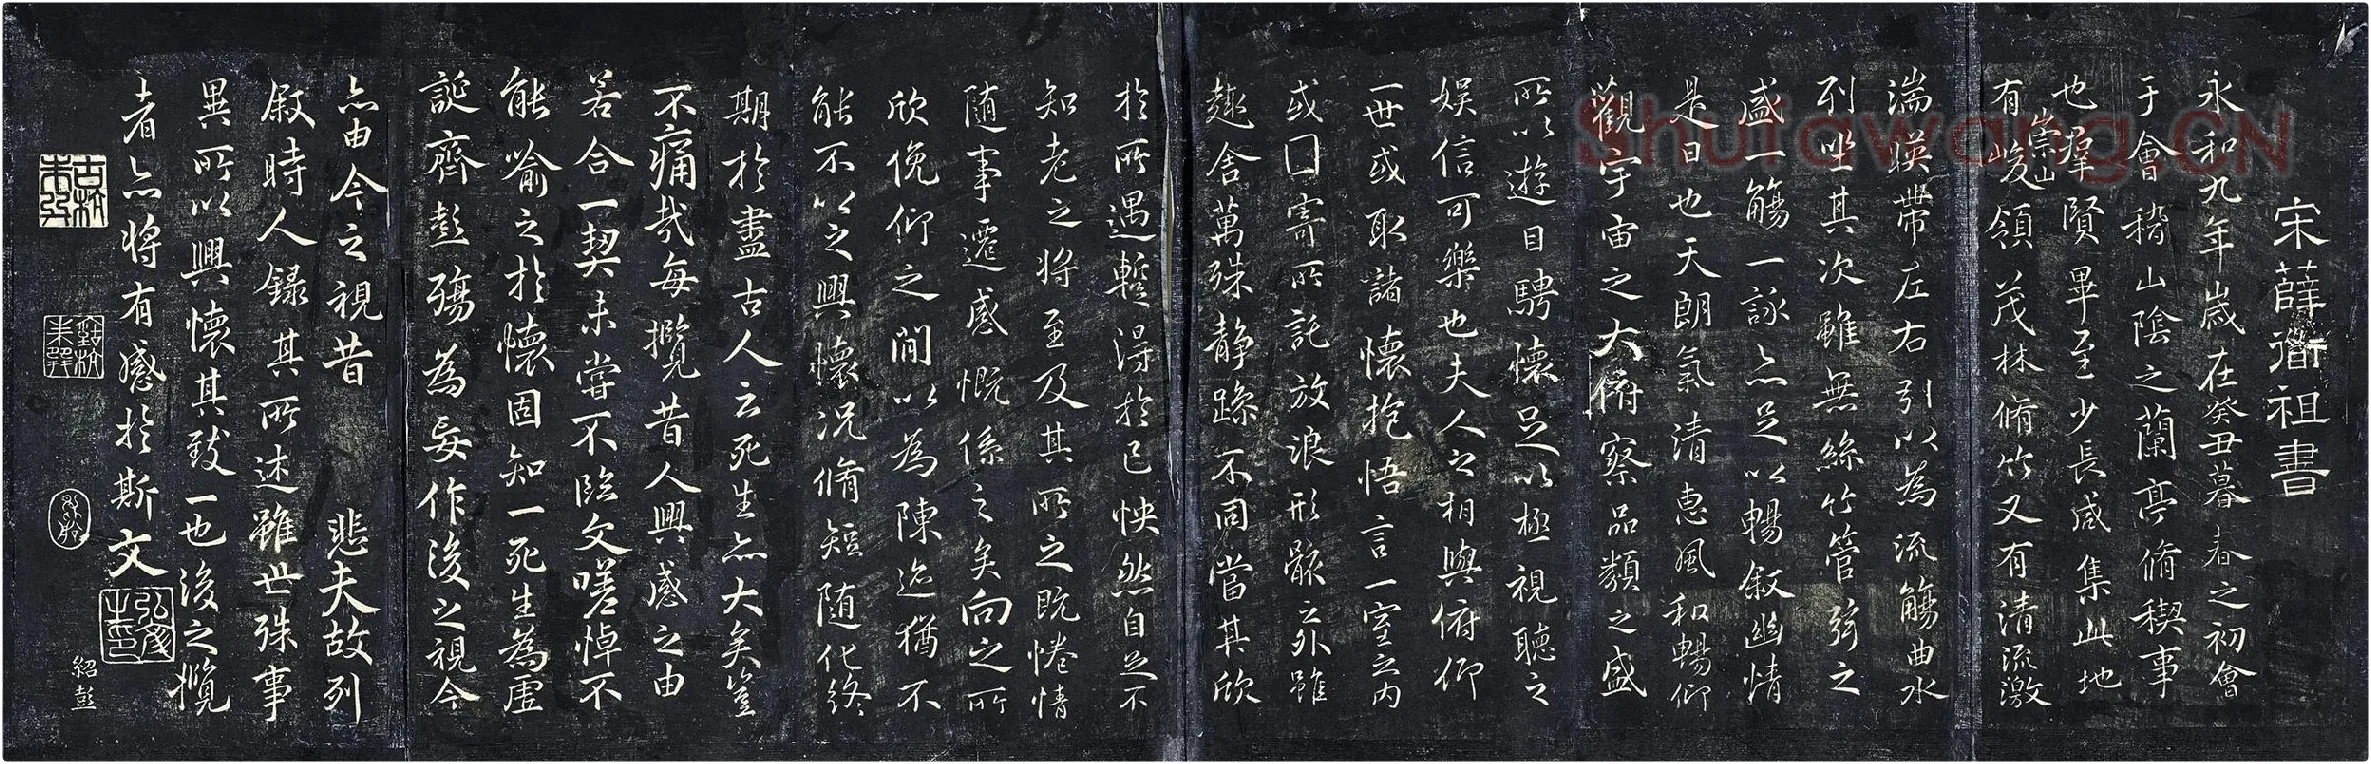 宋薛道祖書
永和九年歲在癸丑暮春之初會
于會稽山陰之蘭亭脩稧事
也羣賢畢至少長咸集此地
有崇山峻領茂林脩竹又有清流激
湍暎帶左右引以為流觴曲水
列坐其次雖無絲竹管弦之
盛一觴一詠亦足以暢敘幽情
是日也天朗氣清惠風和暢仰
觀宇宙之大俯察品類之盛
所以遊目騁懷足以極視聽之
娛信可樂也夫人之相與俯仰
一世或取諸懷抱悟言一室之內
或因寄所託放浪形骸之外雖
趣舍萬殊静躁不同當其欣
於所遇蹔得於己怏然自足不
知老之將至及其所之既惓情
随事遷感慨係之矣向之所
欣俛仰之閒以為陳迹猶不
能不以之興懷況脩短随化終
期於盡古人云死生亦大矣豈
不痛哉每攬昔人興感之由
若合一契未嘗不臨文嗟悼不
能喻之於懷固知一死生為虛
誕齊彭殤為妄作後之視今
亦由今之視昔 悲夫故列
敘時人錄其所述雖世殊事
異所以興懷其致一也後之攬
者亦將有感於斯文
紹彭
Shufawang.CN